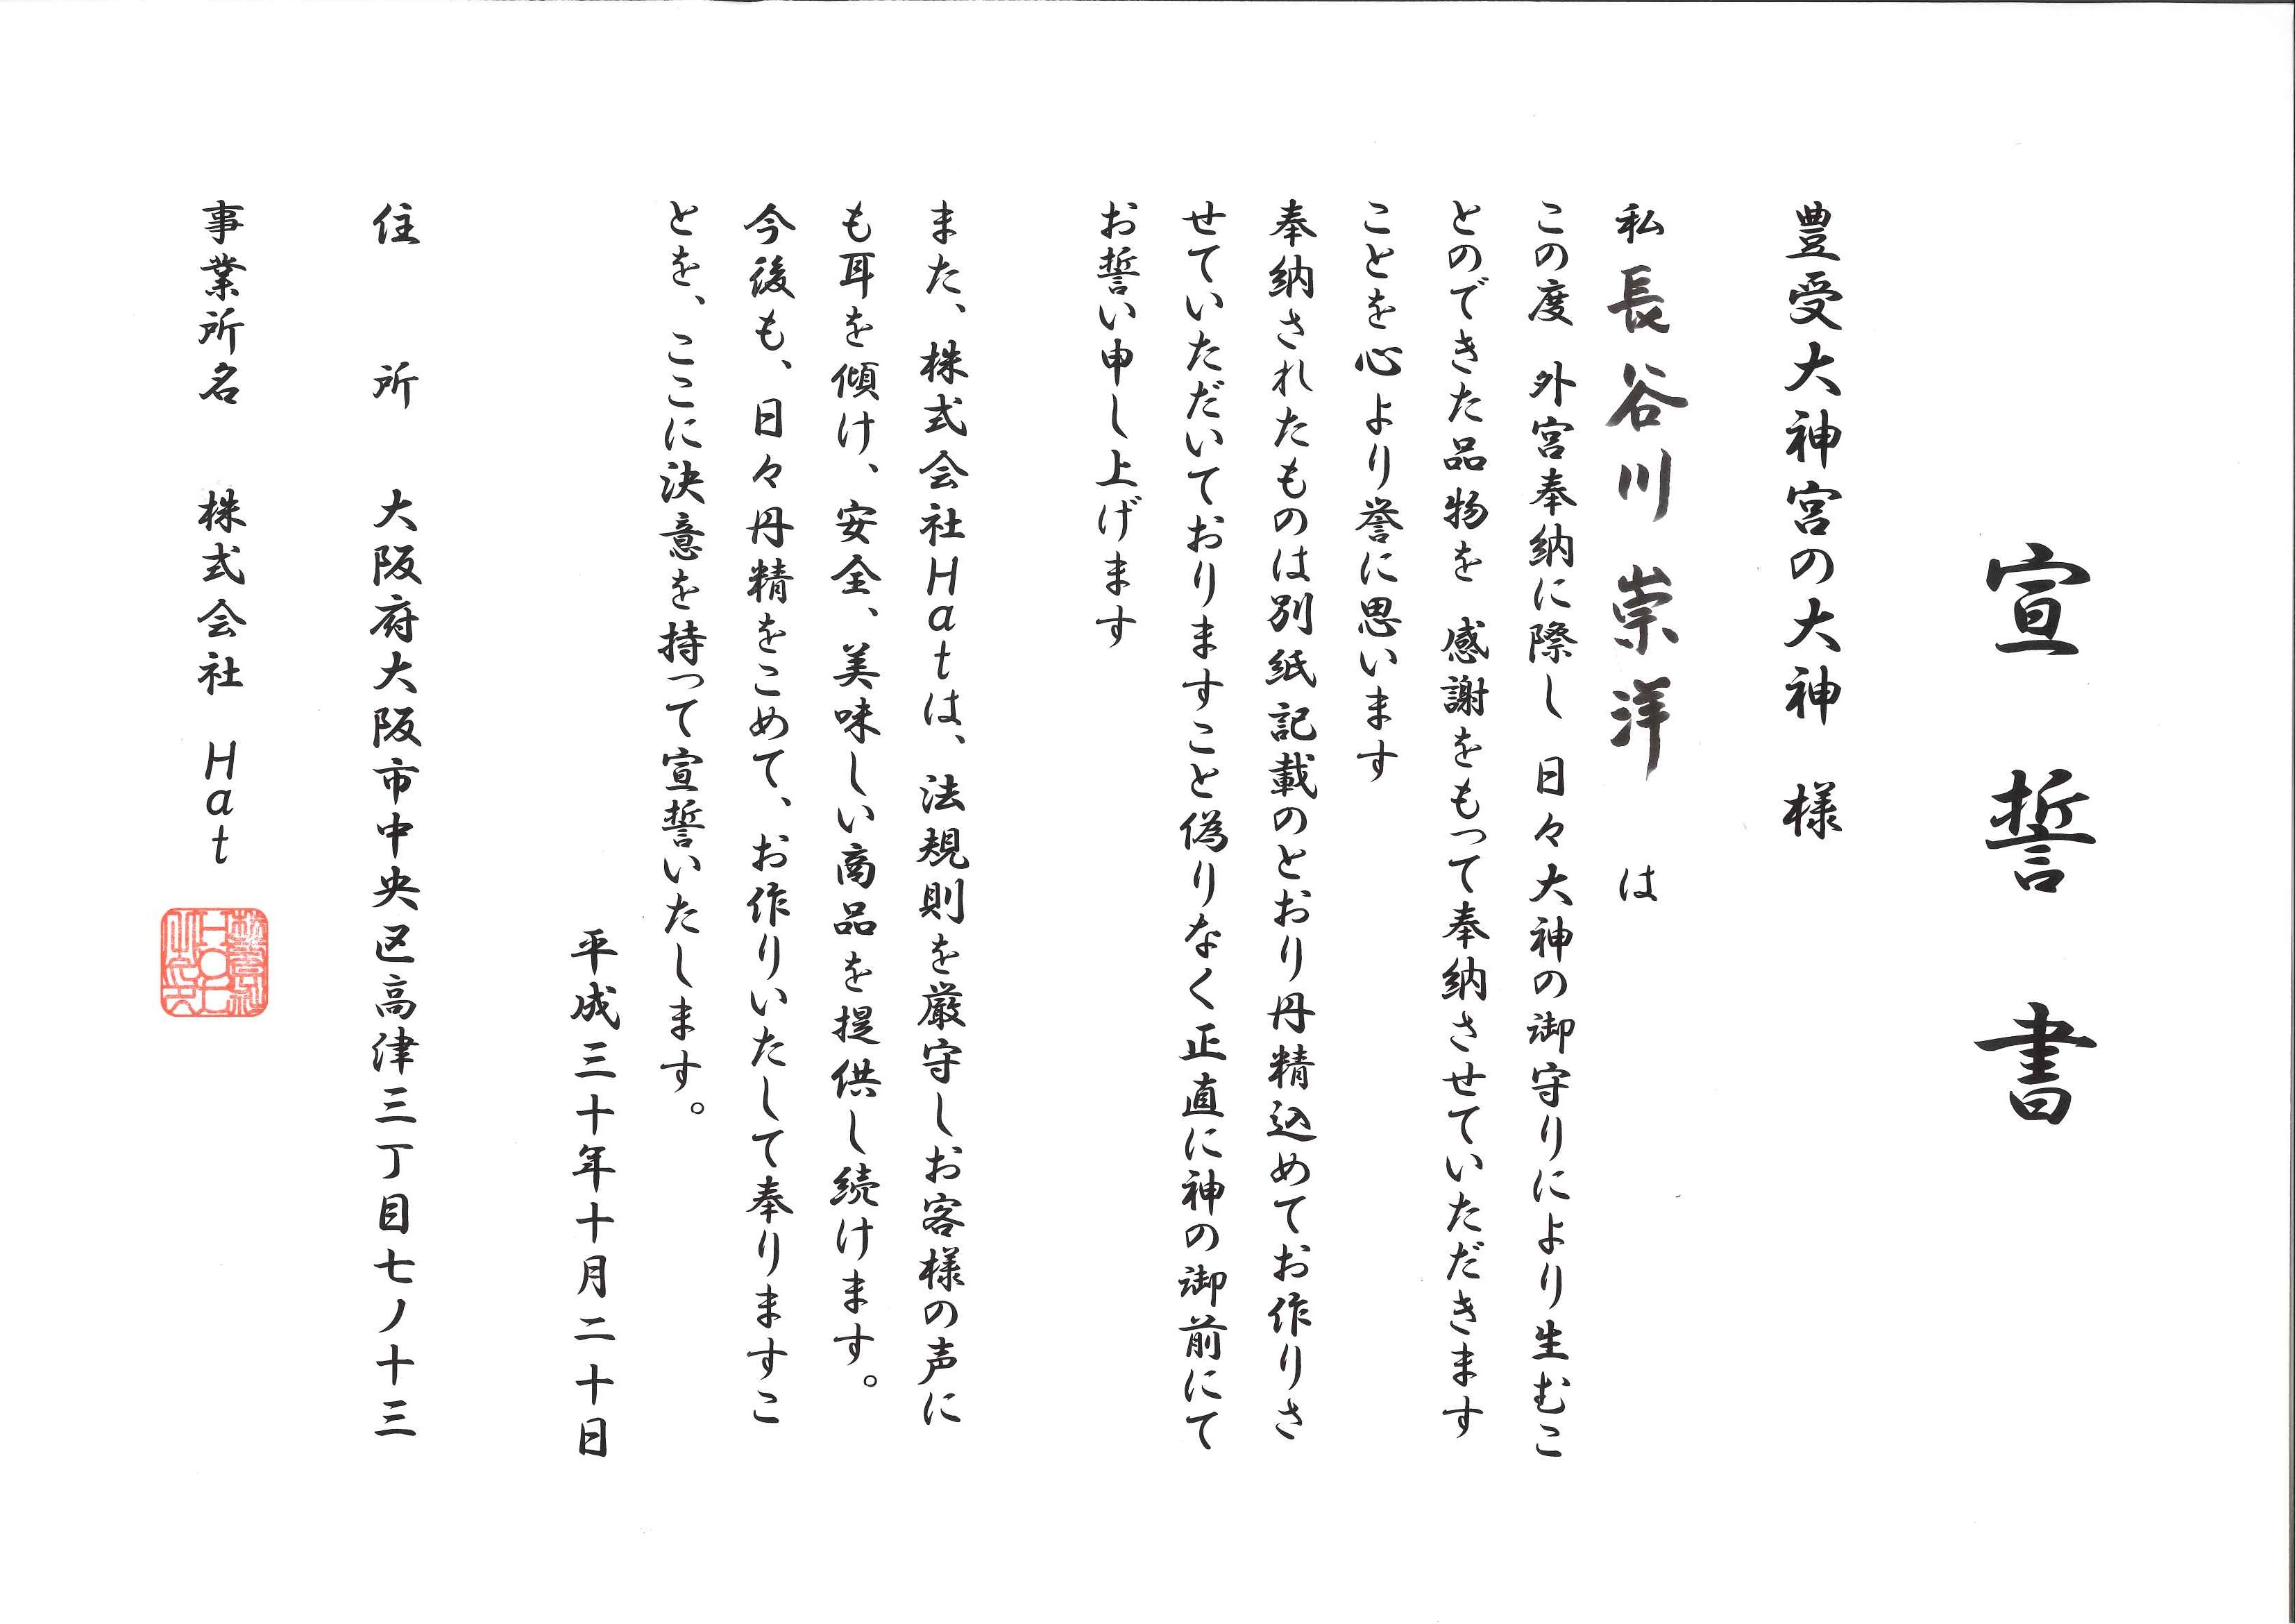 宣誓書
豊受大神宮の大神 様
私 長谷川 崇洋 は
この度 外宮奉納に際し 日々大神の御守りにより生むこ
とのできた品物を 感謝をもって奉納させていただきます
ことを心より誉に思います
奉納されたものは別紙記載のとおり丹精込めてお作りさ
せていただいておりますこと偽りなく正直に神の御前にて
お誓い申し上げます
また、株式会社Hatは、法規則を厳守しお客様の声に
も耳を傾け、安全、美味しい商品を提供し続けます。
今後も、日々丹精をこめて、お作りいたして奉りますこ
とを、ここに決意を持って宣誓いたします。
平成三十年十月二十日
住所 大阪府大阪市中央区高津三丁目七ノ十三
事業所名 株式会社 Hat